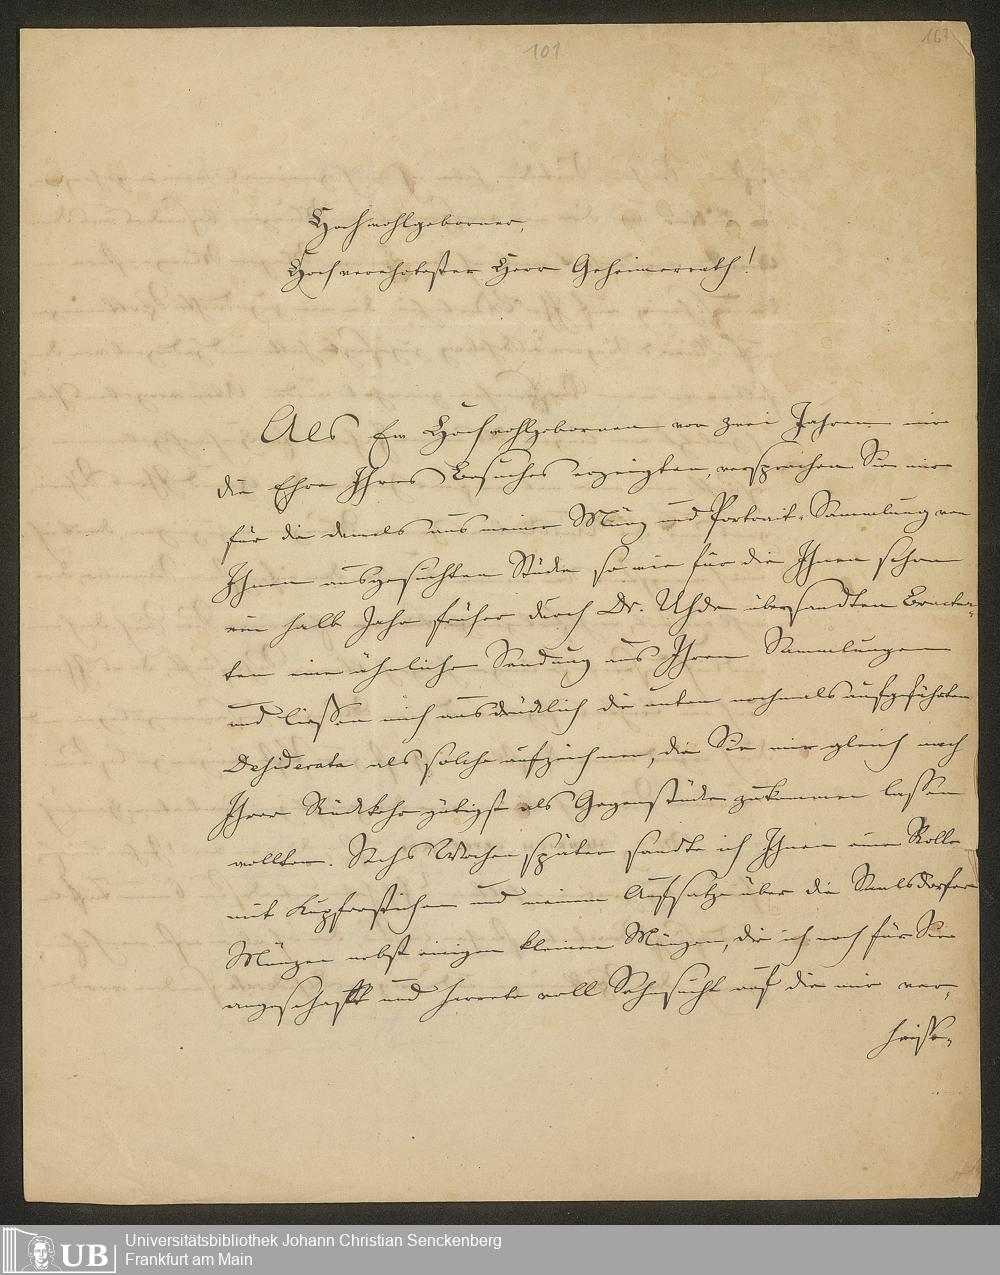 101
167
Hochwohlgeborner,
Hochverehrtester Herr Geheimerrath!
Als Ew Hochwohlgebornen vor zwei Jahren mir
die Ehre Ihres Besuches erzeigten, versprachen Sie mir
für die damals aus meiner Münz und Portrait-Sammlung von
Ihnen ausgesuchten Stücke sowie für die Ihnen schon
ein halb Jahr früher durch Dr. Uhde übersandten Bractea-
ten eine ähnliche Sendung aus Ihren Sammlungen
und liessen mich ausdrücklich die unten nochmals aufgeführten
Desiderata als solche aufzeichnen, die Sie mir gleich nach
Ihrer Rückkehr gütigst als Gegenstücke zukommen lassen
wollten. Sechs Wochen später sandte ich Ihnen eine Rolle
mit Kupferstichen und meinem Aufsatze über die Saalsdorfer
Münzen nebst einigen kleinen Münzen, die ich noch für Sie
angeschafft und harrete voll Sehnsucht auf die mir ver-
heisse-
UB
Universitätsbibliothek Johann Christian Senckenberg
Frankfurt am Main